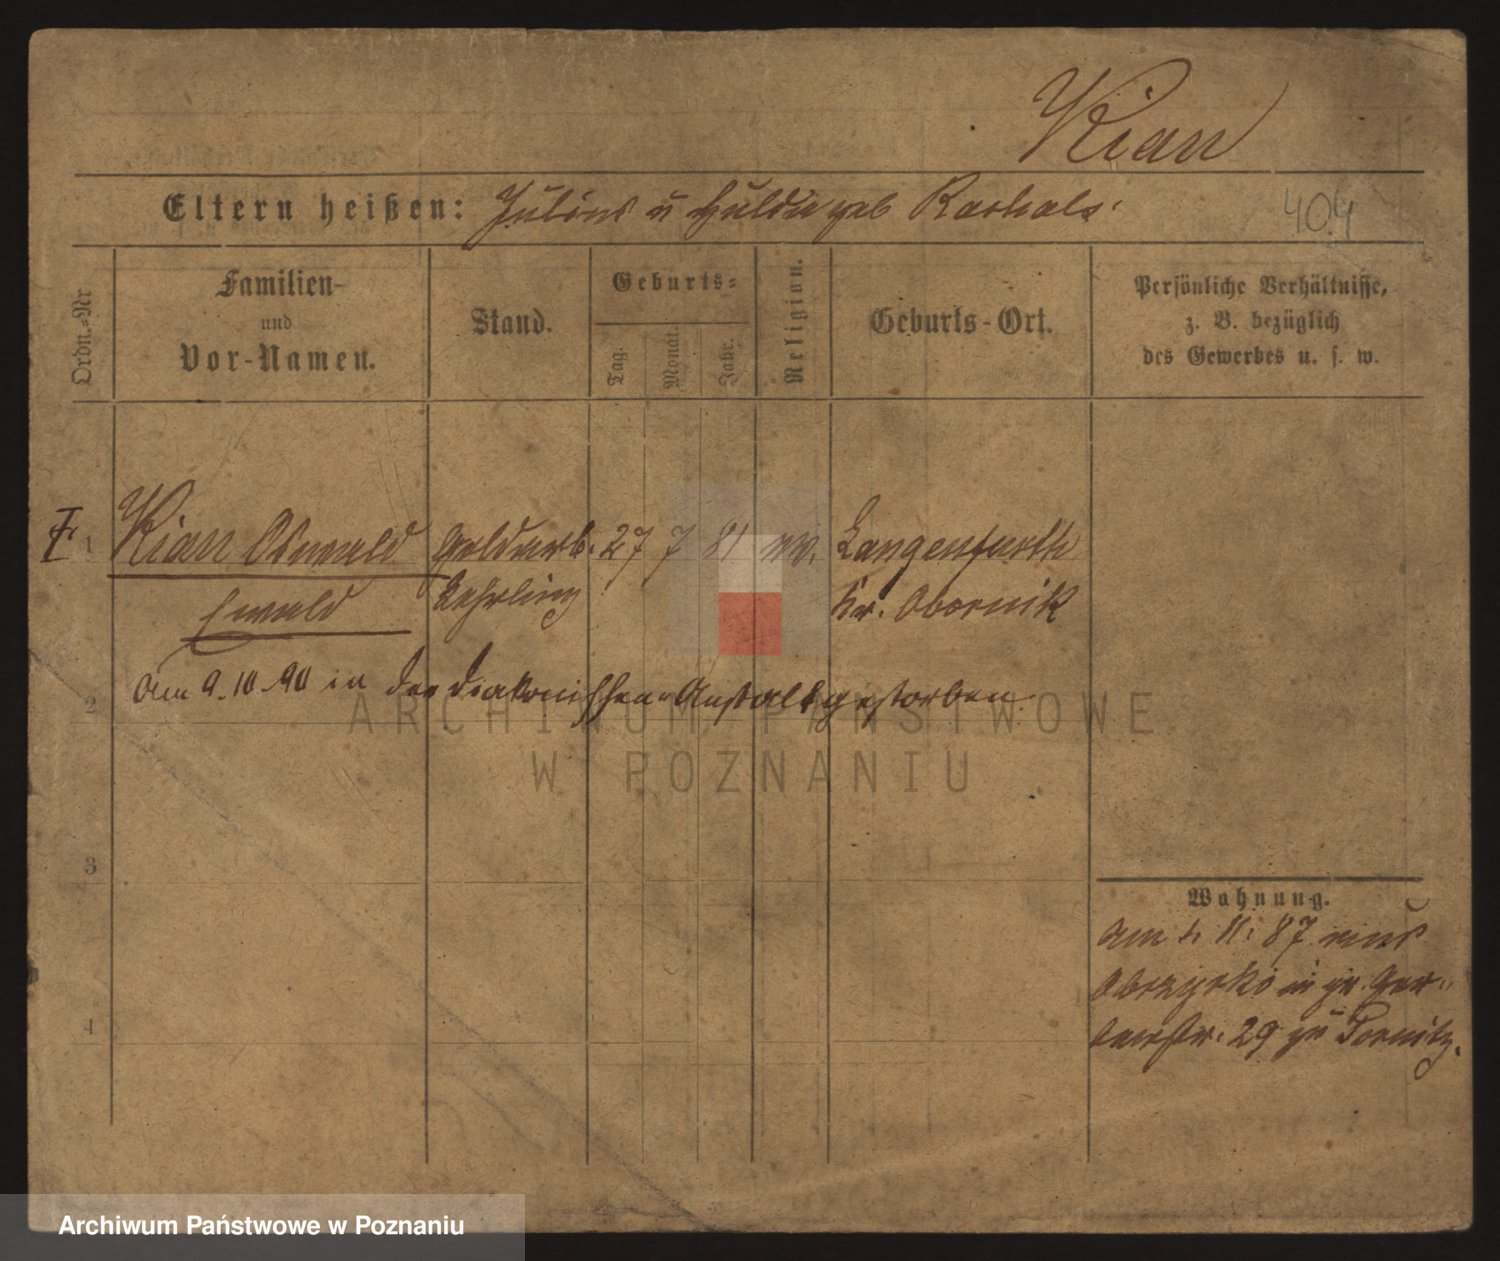 Kian
Eltern heißen: Julius u Hulda geb Raschals. 404
Ordn.-Nr
Familien-
und
Vor-Namen.
Stand.
Geburts-
Tag. Monat. Jahr.
Religion.
Geburts-Ort.
Persönliche Verhältnisse,
z. B. bezüglich
des Gewerbes u. s. w.
1 Kian Oswald 27 7 81 ev. Langenfurth
Ewald Lehrling Kr. Obornik
2 Am 9.10.90 in der Diakonissen-Anstalt gestorben.
3
Wohnung.
Am 1. 11. 87 aus
Obrzycko in gr. Ger-
berstr. 29 zu
4
ARCHIWUM PAŃSTWOWE
W POZNANIU
Archiwum Państwowe w Poznaniu